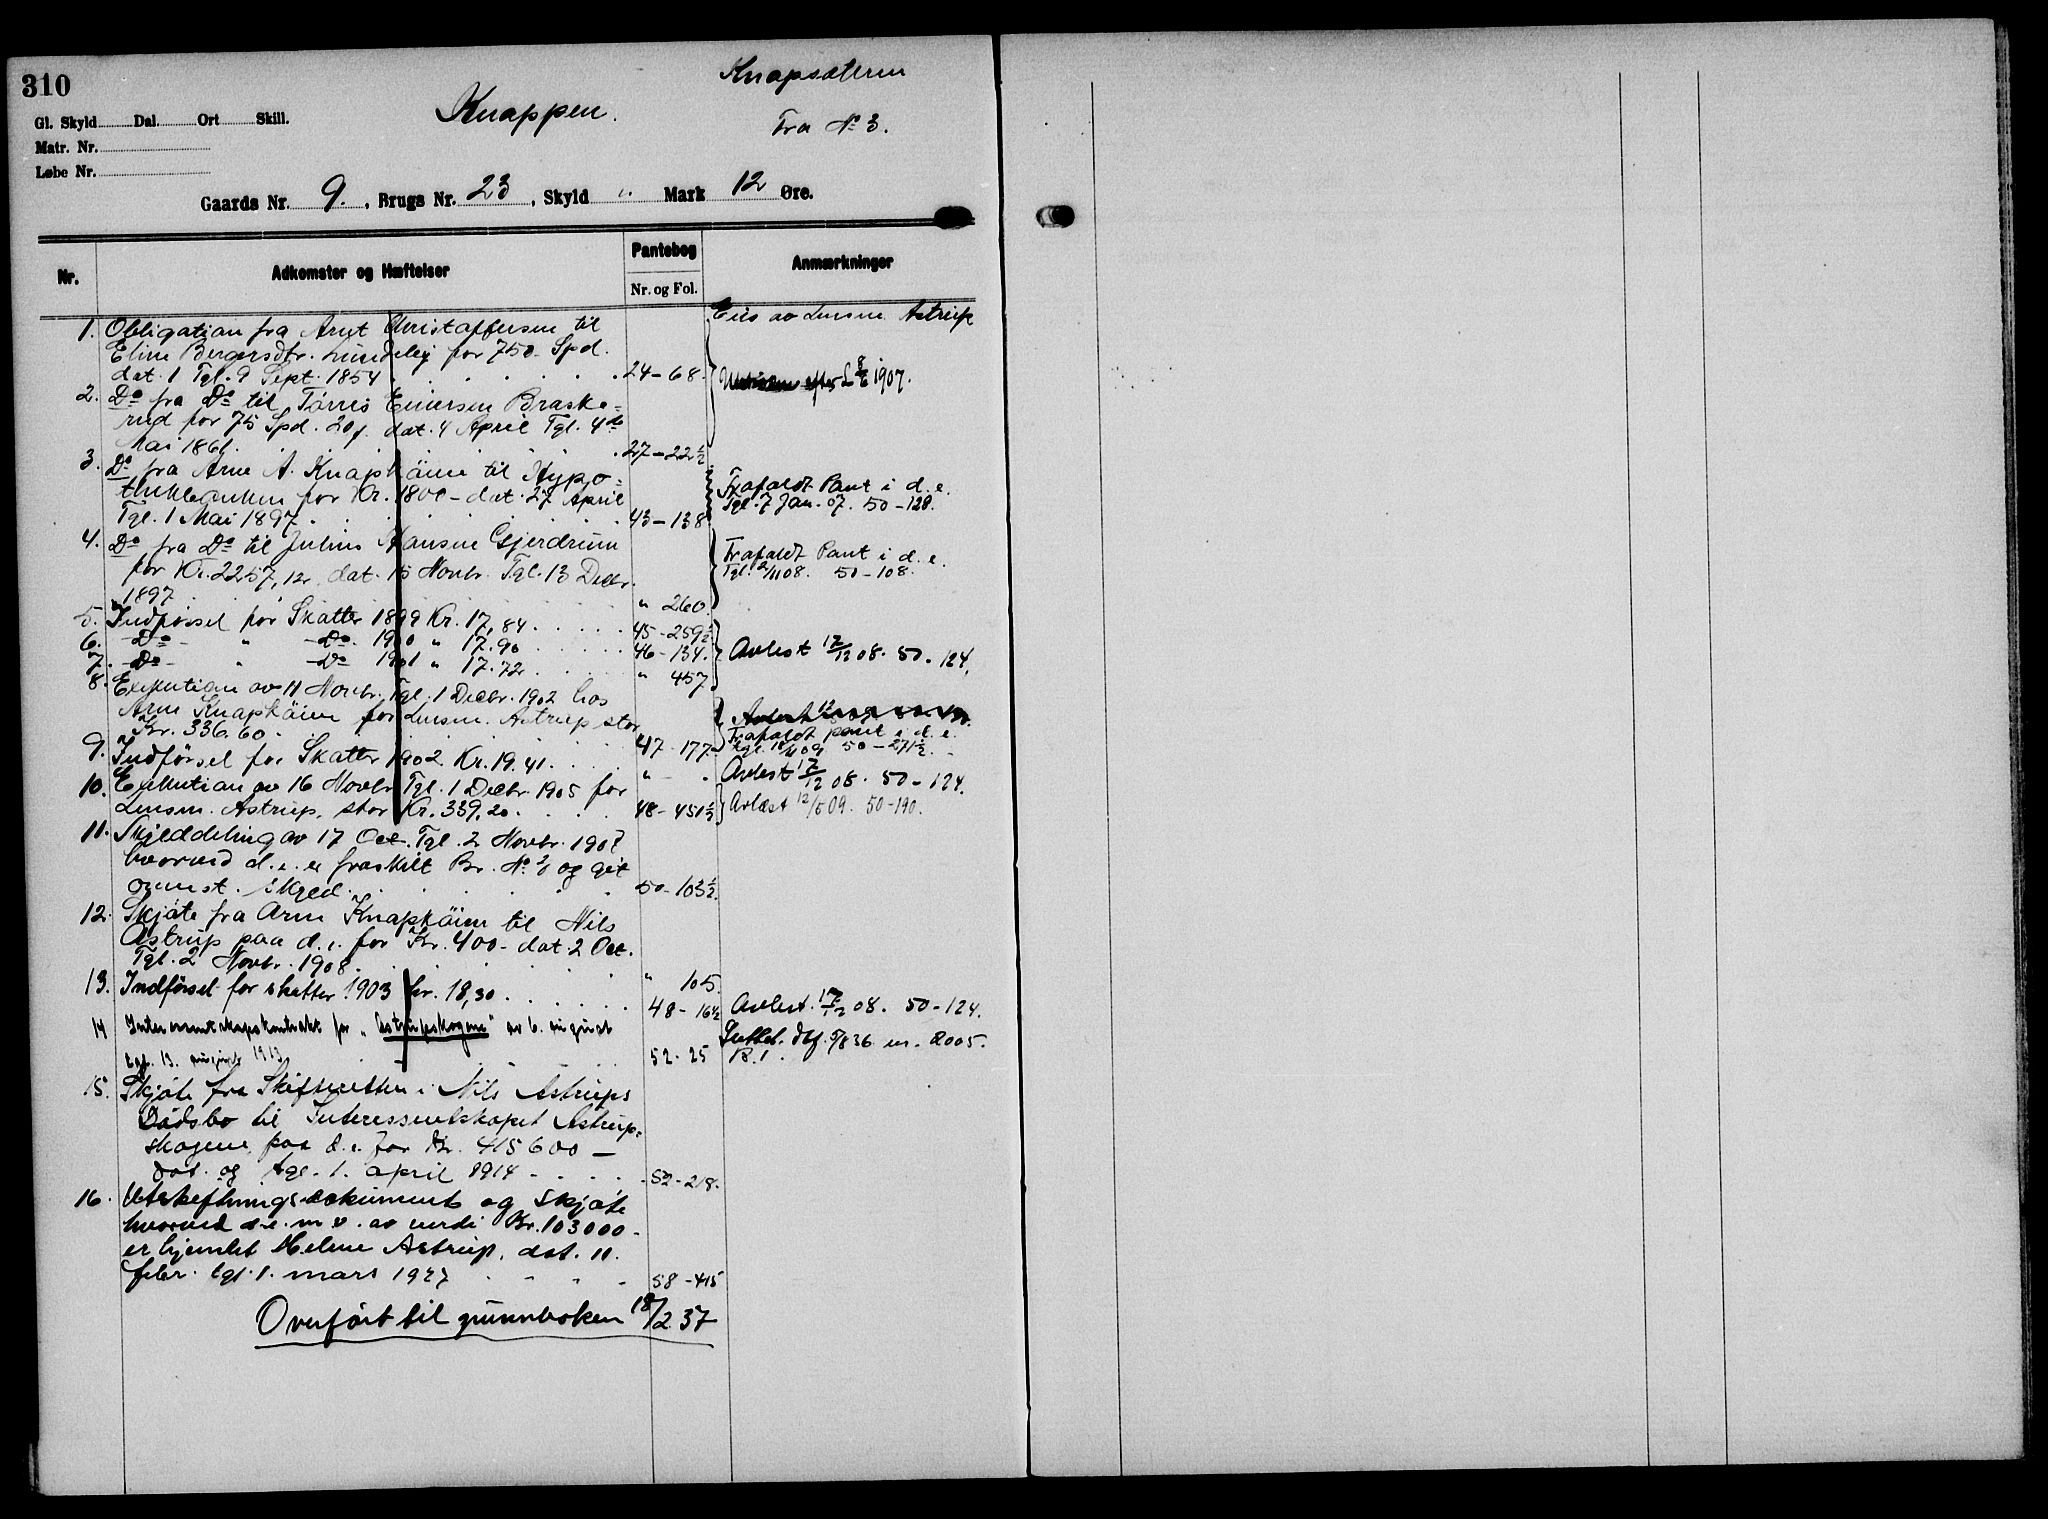 310
Knapsæteren
Knappen.
Fra No 3.
Gl. Skyld Dal Ort Skill.
Matr. Nr.
Løbe Nr.
Gaards Nr. 9. , Brugs Nr. 23 , Skyld " Mark 12 Øre.
Nr. Adkomster og Hæftelser Pantebog Nr. og Fol. Anmærkninger
Eies av Lensm. Astrup
1. Obligation fra Arnt Christoffersen til
Eline Bergersdtr. for 750 Spd.
dat. 1 Tgl. 9 Sept. 1854 24-68.
efter L 8/6 1907.
2. Do fra Do til Torris Einersen Braske=
rud for 75 Spd. dat. 4 April Tgl. 4de
Mai 1861. 27-22½
3. Do fra Arne A. Knapkøien til Hypo=
thekbanken for Kr. 1800- dat. 27 April
Tgl. 1 Mai 1897. 43-138
Frafaldt Pant i d. e.
Tgl. 7 Jan. 07. 50-128.
4. Do fra Do til Julius Hansen Gjerdrum
for Kr. 2257,12, dat. 15 Novbr. Tgl. 13 Decbr.
1897 " 260.
Frafaldt Pant i d. e.
Tgl. 2/11 08. 50-108.
5. Indførsel for Skatter 1899 Kr. 17,84. 45-259½
6. -Do- " -Do- 1900 " 17.90 46-134.
7. -Do- " -Do- 1901 " 17.72 " 457
Avlest 17/12 08. 50-124.
8. Exekution av 11 Novbr. Tgl. 1 Decbr. 1902 hos
Arne Knapkøien for Lensm. Astrup stor
Kr. 336.60. 47-177
Frafaldt pant i d. e.
50-271½
9. Indførsel for Skatter 1902. Kr. 19.41. " - "
Avlest 17/12 08. 50-124.
10. Exekution av 16 Novbr. Tgl. 1 Decbr. 1905 for
Lensm. Astrup, stor Kr. 339,20. 48-451½
Avlæst 12/5 09. 50-190.
11. Skylddeling av 17 Oct. Tgl. 2 Novbr. 1908
hvorved d. e. er fraskilt Br. No 3 og git
ovenst. Skyld. 50-103½.
12. Skjøte fra Arne Knapkøien til Nils
Astrup paa d. e. for Kr. 400- dat. 2 Oct.
Tgl. 2 Novbr. 1908. " 105.
13. Indførsel for skatter 1903 kr. 18,30. 48-16½
Avlest. 17/12 08. 50-124.
14 Interessentskapskontrakt for "Astrupskogene" av 6. august
tgl. 13. august 1913 52-25
Slettet. nr. 2005.
15. Skjøte fra Skifteretten i Nils Astrups
Dødsbo til Interessentskapet Astrup=
skogene paa d. e. for Kr. 415600-
dat. og tgl. 1. april 1914 52-218.
16. Utskiftningsdokument og skjøte
hvorved d. e. m. v. av verdi Kr. 103000-
er hjemlet Helene Astrup, dat. 11.
febr. tgl. 1. mars 1927 58-415
Overført til grunnboken 18/2 37